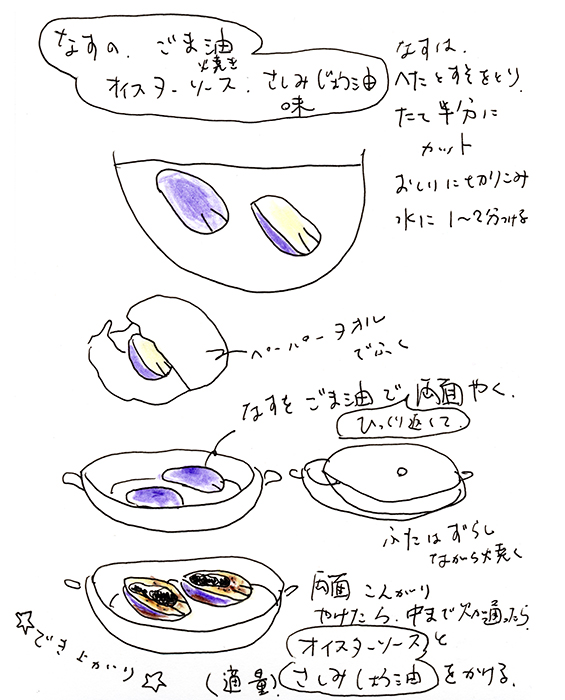 なすの、ごま油
焼き
オイスターソース、さしみじょう油
味
なすは、
へたとすそをとり、
たて半分に
カット
おしりに切りこみ
水に1〜2分つける
ペーパータオル
でふく
なすをごま油で両面やく。
ひっくり返して
ふたはずらし
ながら焼く
両面こんがり
やけたら、中まで火が通ったら、
オイスターソースと
(適量)さしみじょう油をかける。
☆できあがり☆